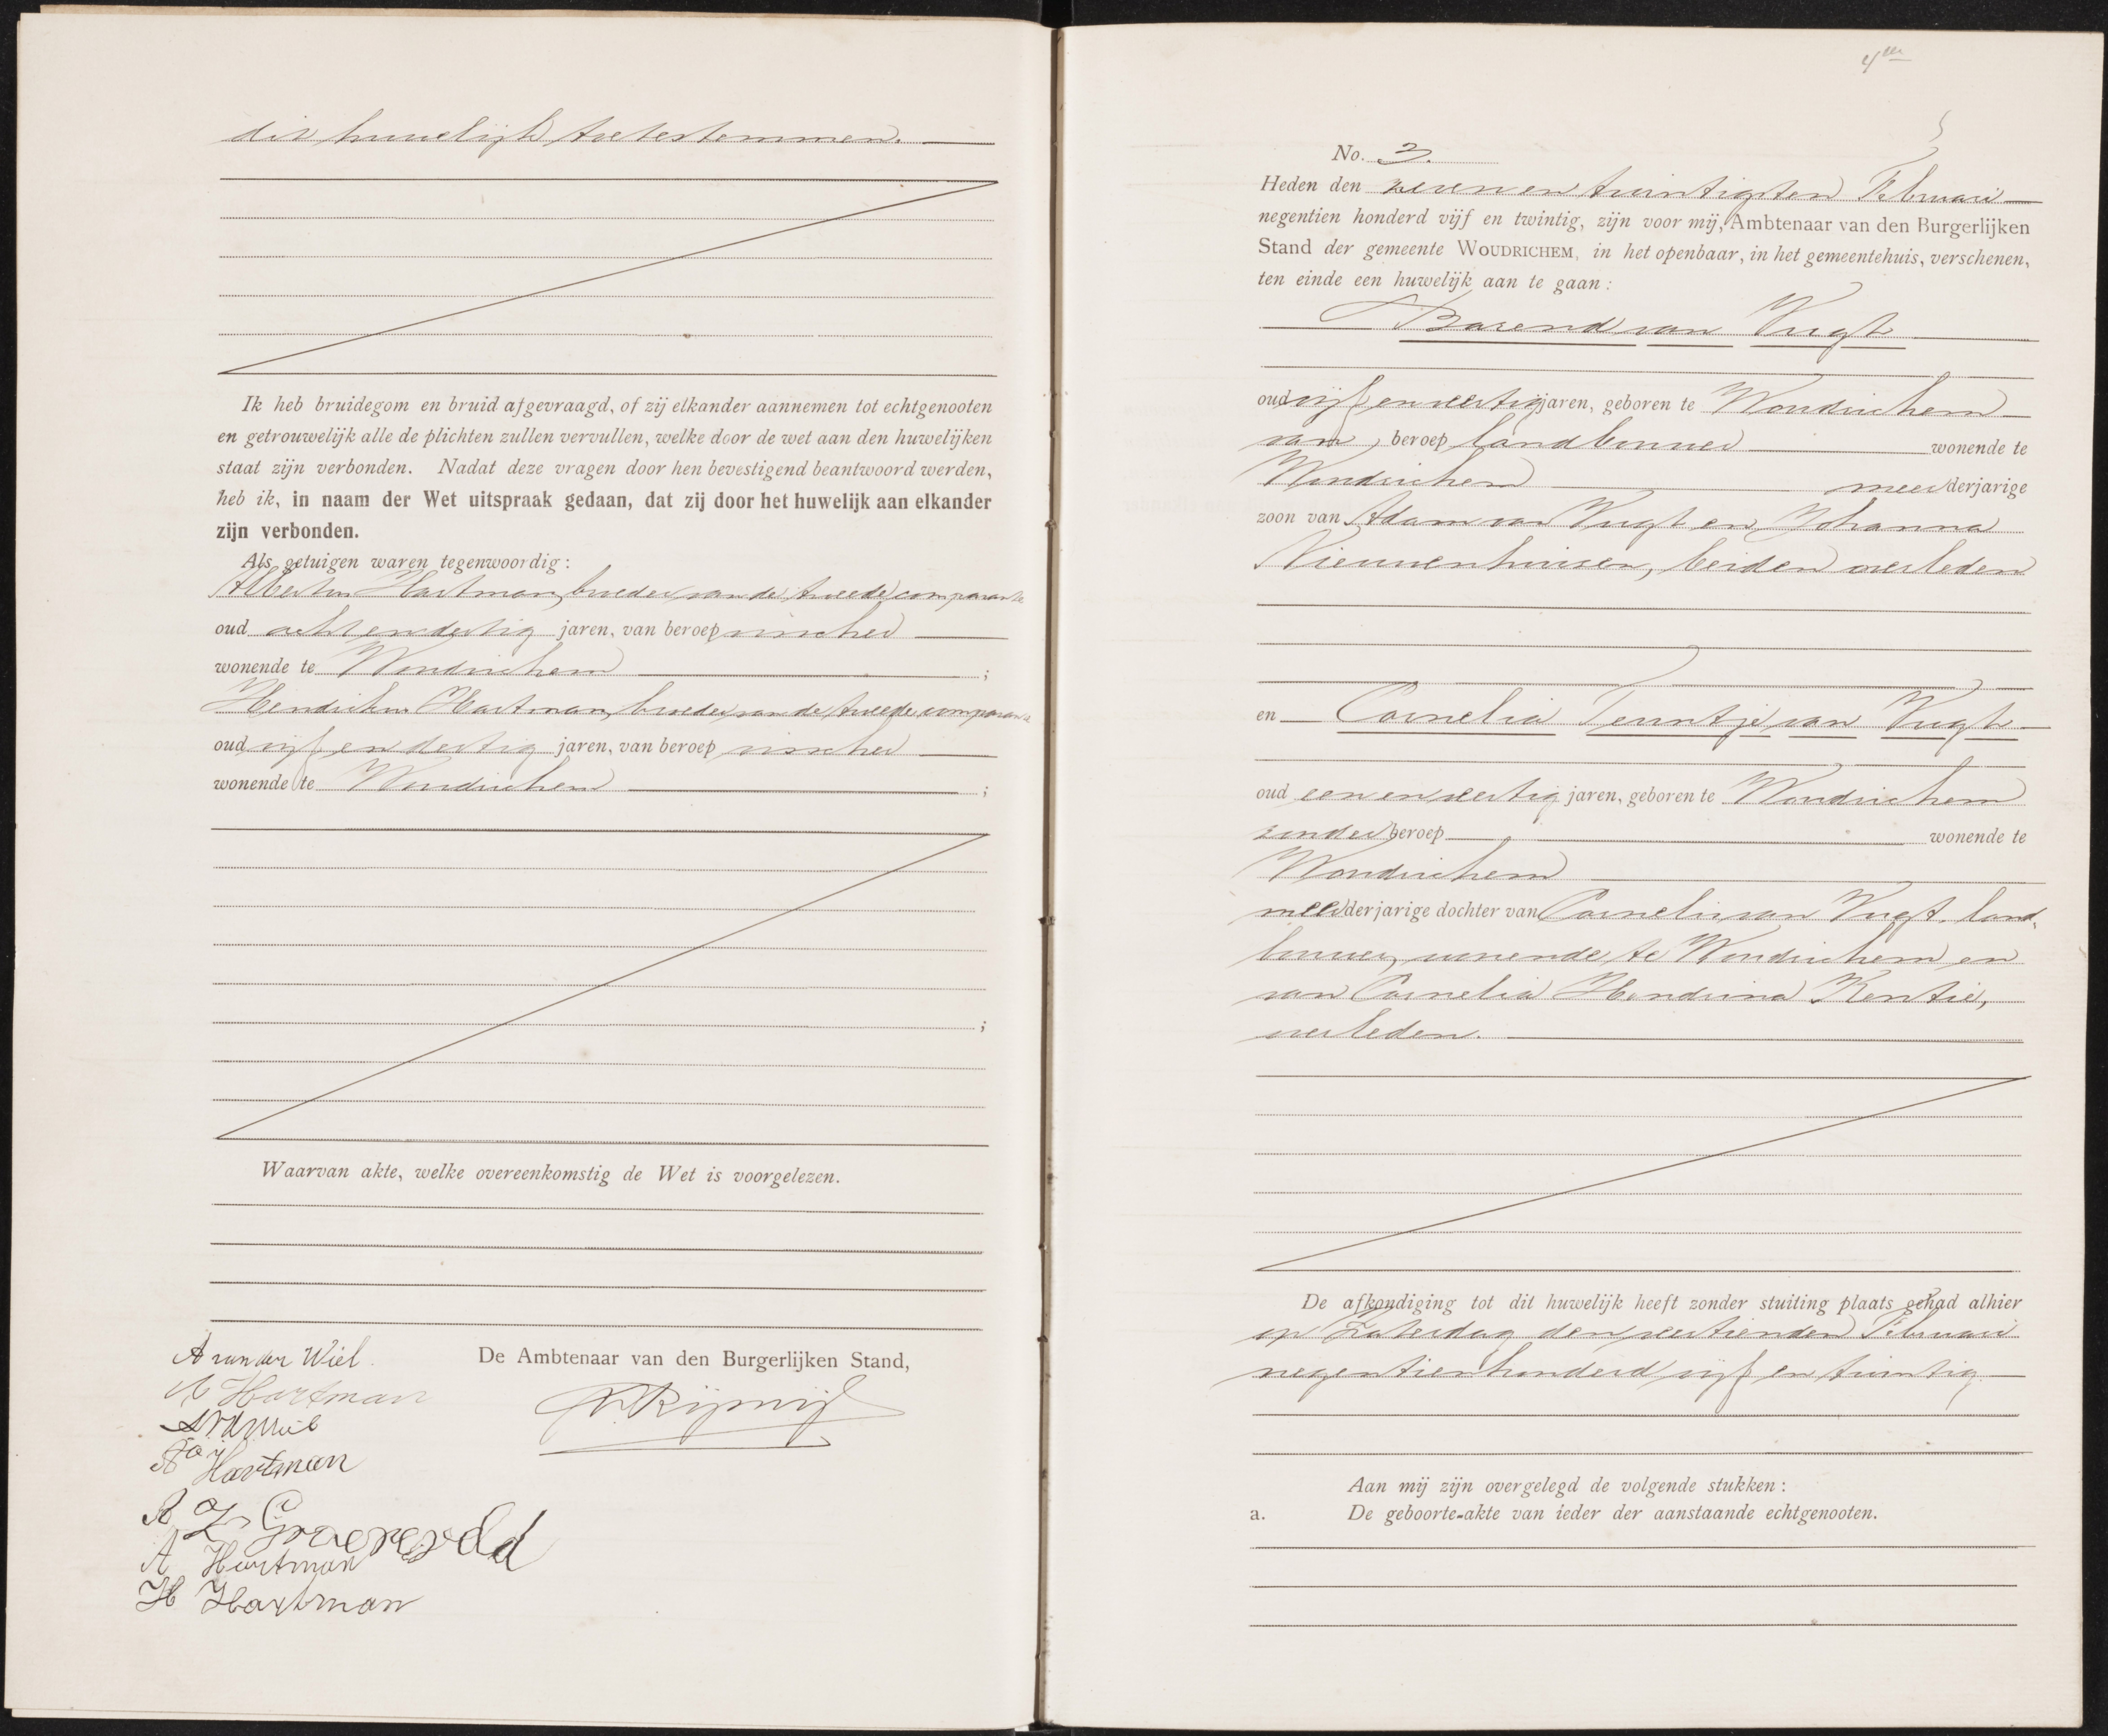 dit huwelijk toetestemmen.
Ik heb bruidegom en bruid afgevraagd, of zij elkander aannemen tot echtgenooten
en getrouwelijk alle de plichten zullen vervullen, welke door de wet aan den huwelijken
staat zijn verbonden. Nadat deze vragen door hen bevestigend beantwoord werden,
heb ik, in naam der Wet uitspraak gedaan, dat zij door het huwelijk aan elkander
zijn verbonden.
Als getuigen waren tegenwoordig:
Albertus Hartman, broeder van de tweede comparante
oud acht en dertig jaren, van beroep visscher
wonende te Woudrichem ;
Hendrikus Hartman, broeder van de tweede comparante
oud vijf en dertig jaren, van beroep visscher
wonende te Woudrichem ;
;
Waarvan akte, welke overeenkomstig de Wet is voorgelezen.
A van der Wiel
De Ambtenaar van den Burgerlijken Stand,
A Hartman
Hartman
Groeneveld
A Hartman
H Hartman
4
No. 3.
Heden den zeven en twintigsten Februari
negentien honderd vijf en twintig, zijn voor mij, Ambtenaar van den Burgerlijken
Stand der gemeente WOUDRICHEM, in het openbaar, in het gemeentehuis, verschenen,
ten einde een huwelijk aan te gaan:
Barend van Vugt
oud vijf en veertig jaren, geboren te Woudrichem
van beroep landbouwer wonende te
Woudrichem meerderjarige
zoon van Adam van Vugt en Johanna
Nieuwenhuisen, beiden overleden
en Cornelia Teuntje van Vugt
oud een en veertig jaren, geboren te Woudrichem
zonder beroep wonende te
Woudrichem
meerderjarige dochter van Cornelis van Vugt, land-
bouwer, wonende te Woudrichem en
van Cornelia Hendrina Kentie,
overleden.
De afkondiging tot dit huwelijk heeft zonder stuiting plaats gehad alhier
op Zaterdag den veertienden Februari
negentienhonderd vijf en twintig
Aan mij zijn overgelegd de volgende stukken:
a. De geboorte-akte van ieder der aanstaande echtgenooten.